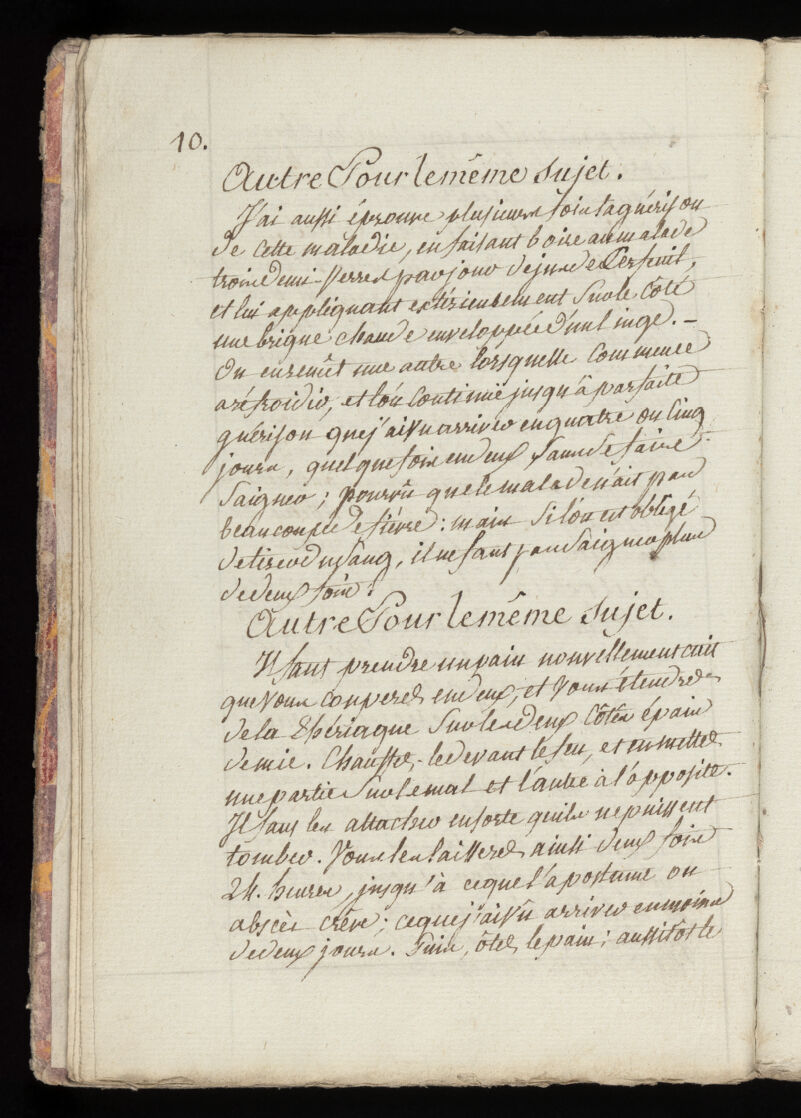 10.
Autre Pour le même sujet.
J'ai aussi éprouvé plusieurs fois la guérison
de cette maladie, en faisant boire au malade
trois demi-Verres par jour de jus de Cerfeuil,
et lui appliquant extérieurement sur le Côté
une brique chaude enveloppée d'un linge. -
On en remêt une autre lorsquelle commence
a réfroidir, et l'on continüe jusqu'à parfaite
guérison que j'ai vu arriver en quatre ou Cinq
jours, quelque fois en deux sans de faire
Saigner; pourvû que le malade n'ait pas
beaucoup de fièvre: mais Si l'on est obligé
de tirer du Sang, il ne faut pas Saigner plus
de deux fois.
Autre Pour le même sujet.
Il faut prendre un pain nouvellement cuit
que Vous Couperes en deux, et Vous étendres
de la Thériaque Sur les deux Côtés épais
de mie. Chauffés-le devant le feu, et en mettes
une partie Sur le mal et l'autre à l'opposite.
Il faut les attacher ensorte quils ne puissent
tomber. Vous les laisseres ainsi deux fois
24. heures, jusqu'à ceque l'apostume ou
abscès crêve; ceque j'ai vû arriver en moins
de deux jours. Puis, ôtes le pain; aussitôt le